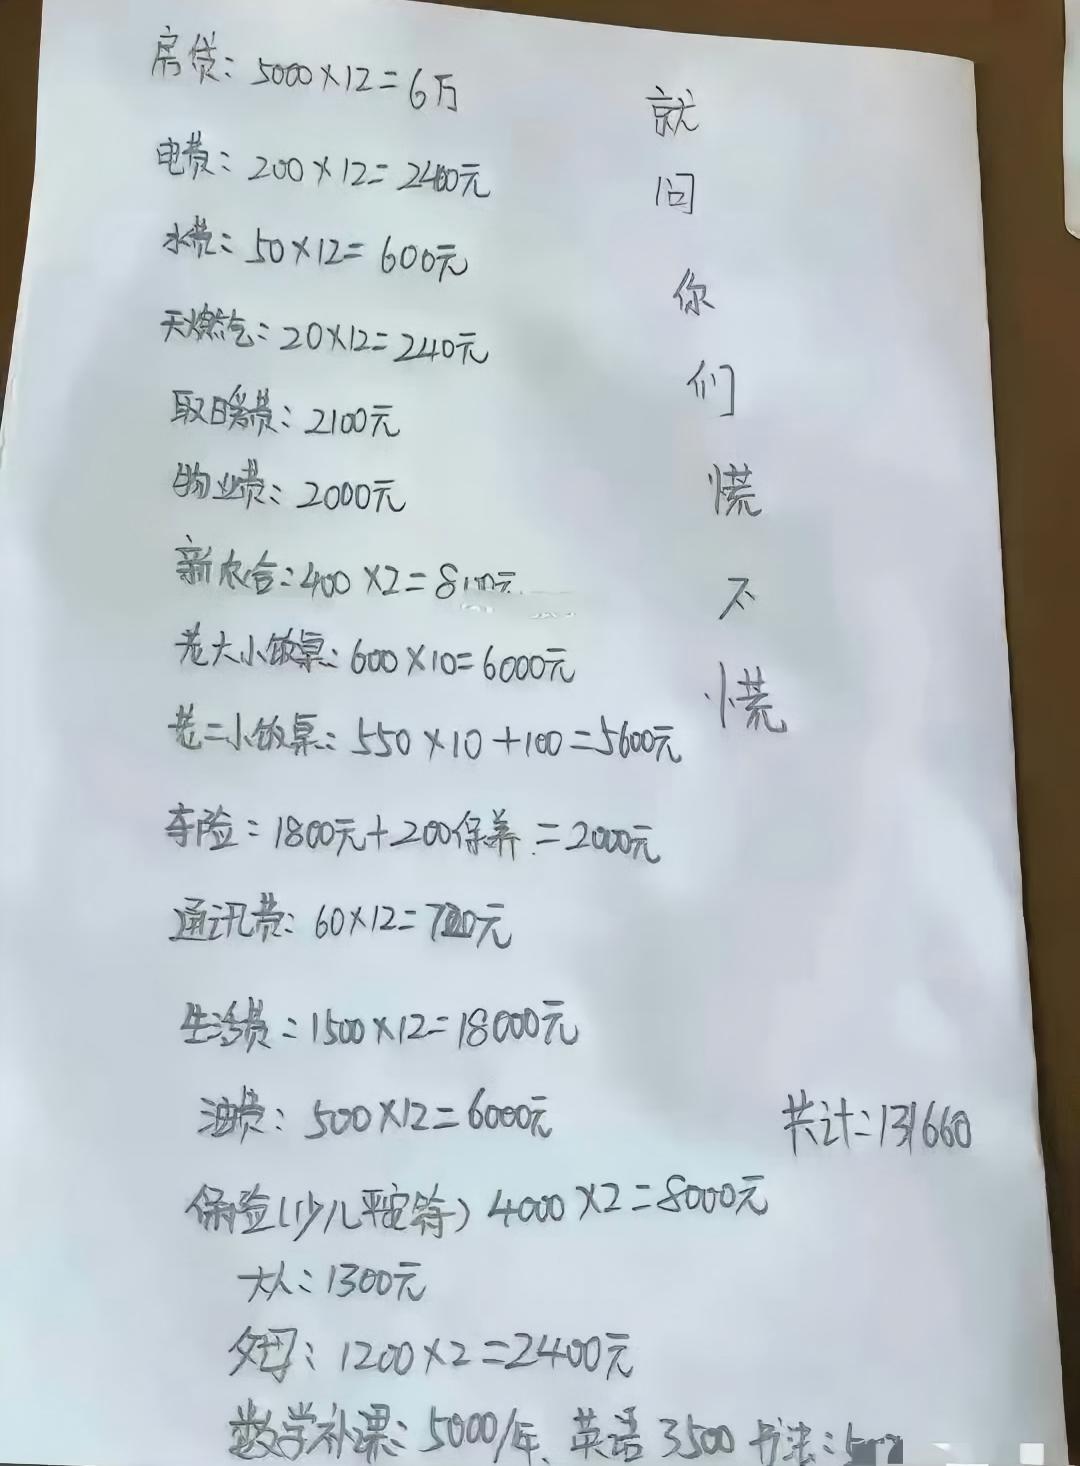 房贷：5000×12=6万
电费：200×12=2400元
水费：50×12=600元
天燃气：20×12=240元
取暖费：2100元
物业费：2000元
新农合：400×2=800元
老大小饭桌：600×10=6000元
老二小饭桌：550×10+100=5600元
车险：1800元+200保养=2000元
通讯费：60×12=720元
生活费：1500×12=18000元
油费：500×12=6000元
保险(少儿平安符)4000×2=8000元
大人：1300元
父母：1200×2=2400元
数学补课：5000/年、英语3500 书法：
就问你们慌不慌
共计：131660